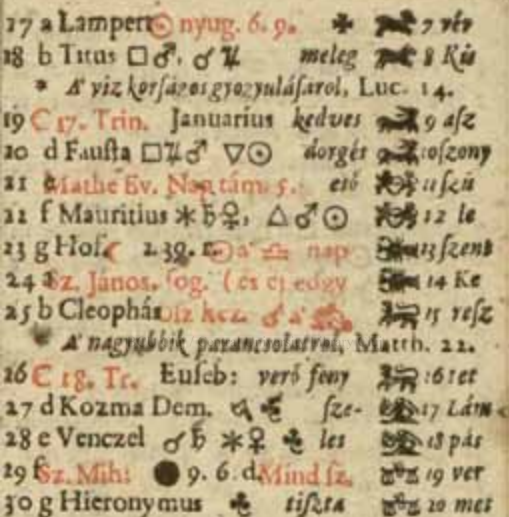 17 a Lampert ☉ nyug. 6. 9. 7 vér
18 b Titus □♂, ☌♃ meleg 8 Kis
* A' viz korságos gyogyulásarol, Luc. 14.
19 C 17. Trin. Januarius kedves 9 asz
20 d Fausta □♃♂ ▽☉ dorgés 10 szony
21 Mathe Ev. Nap tám. 5. esö 11 szü
22 f Mauritius ✶♄♀, △♂☉ 12 le
23 g Hol. ☾ 2. 39. r. ☉ a' ♎ nap 13 szent
24 Sz. János. fog. (es ej edgy 14 Ke
25 b Cleophás 15 resz
* A' nagyubbik parancsolatrol, Matth. 22.
26 C 18. Tr. Euseb: verö feny 16 tet
27 d Kozma Dem. sze- 17 Lám
28 e Venczel ☌♄ ✶♀ les 18 pás
29 f Sz. Mih: ● 9. 6. d. Mind sz. 19 ver
30 g Hieronymus tiszta 20 met